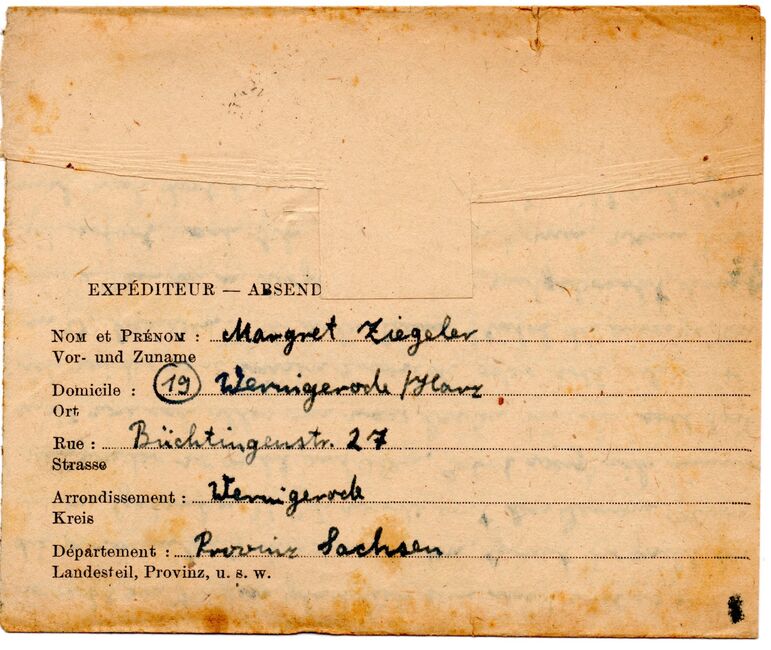 EXPÉDITEUR — ABSEND
NOM et PRÉNOM : Margret Ziegeler
Vor- und Zuname
Domicile : 19 Wernigerode /Harz
Ort
Rue : Büchtingenstr. 27
Strasse
Arrondissement : Wernigerode
Kreis
Département : Provinz Sachsen
Landesteil, Provinz, u. s. w.